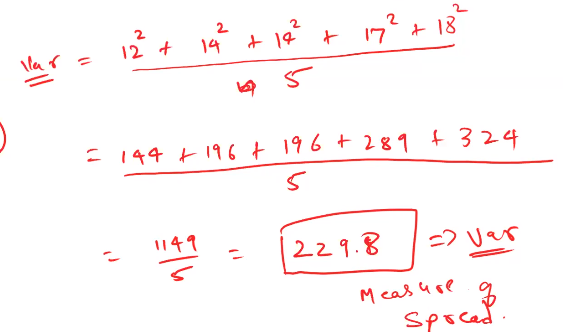 Var = 12² + 14² + 14² + 17² + 18²
5
= 144 + 196 + 196 + 289 + 324
5
= 1149/5 = 229.8 => Var
Measure of
Spread.